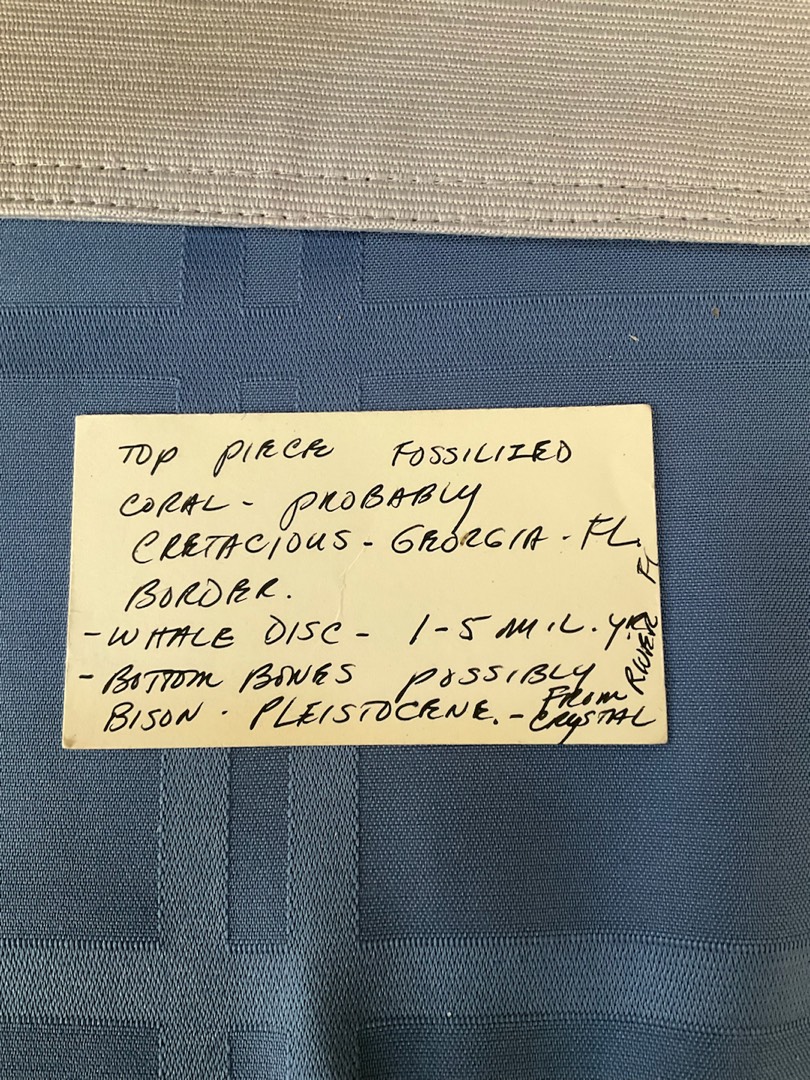 TOP PIECE FOSSILIZED
CORAL - PROBABLY
CRETACIOUS - GEORGIA - FL.
BORDER.
- WHALE DISC - 1-5 MIL. YR
- BOTTOM BONES POSSIBLY
BISON - PLEISTOCENE. - FROM
CRYSTAL
RIVER FL